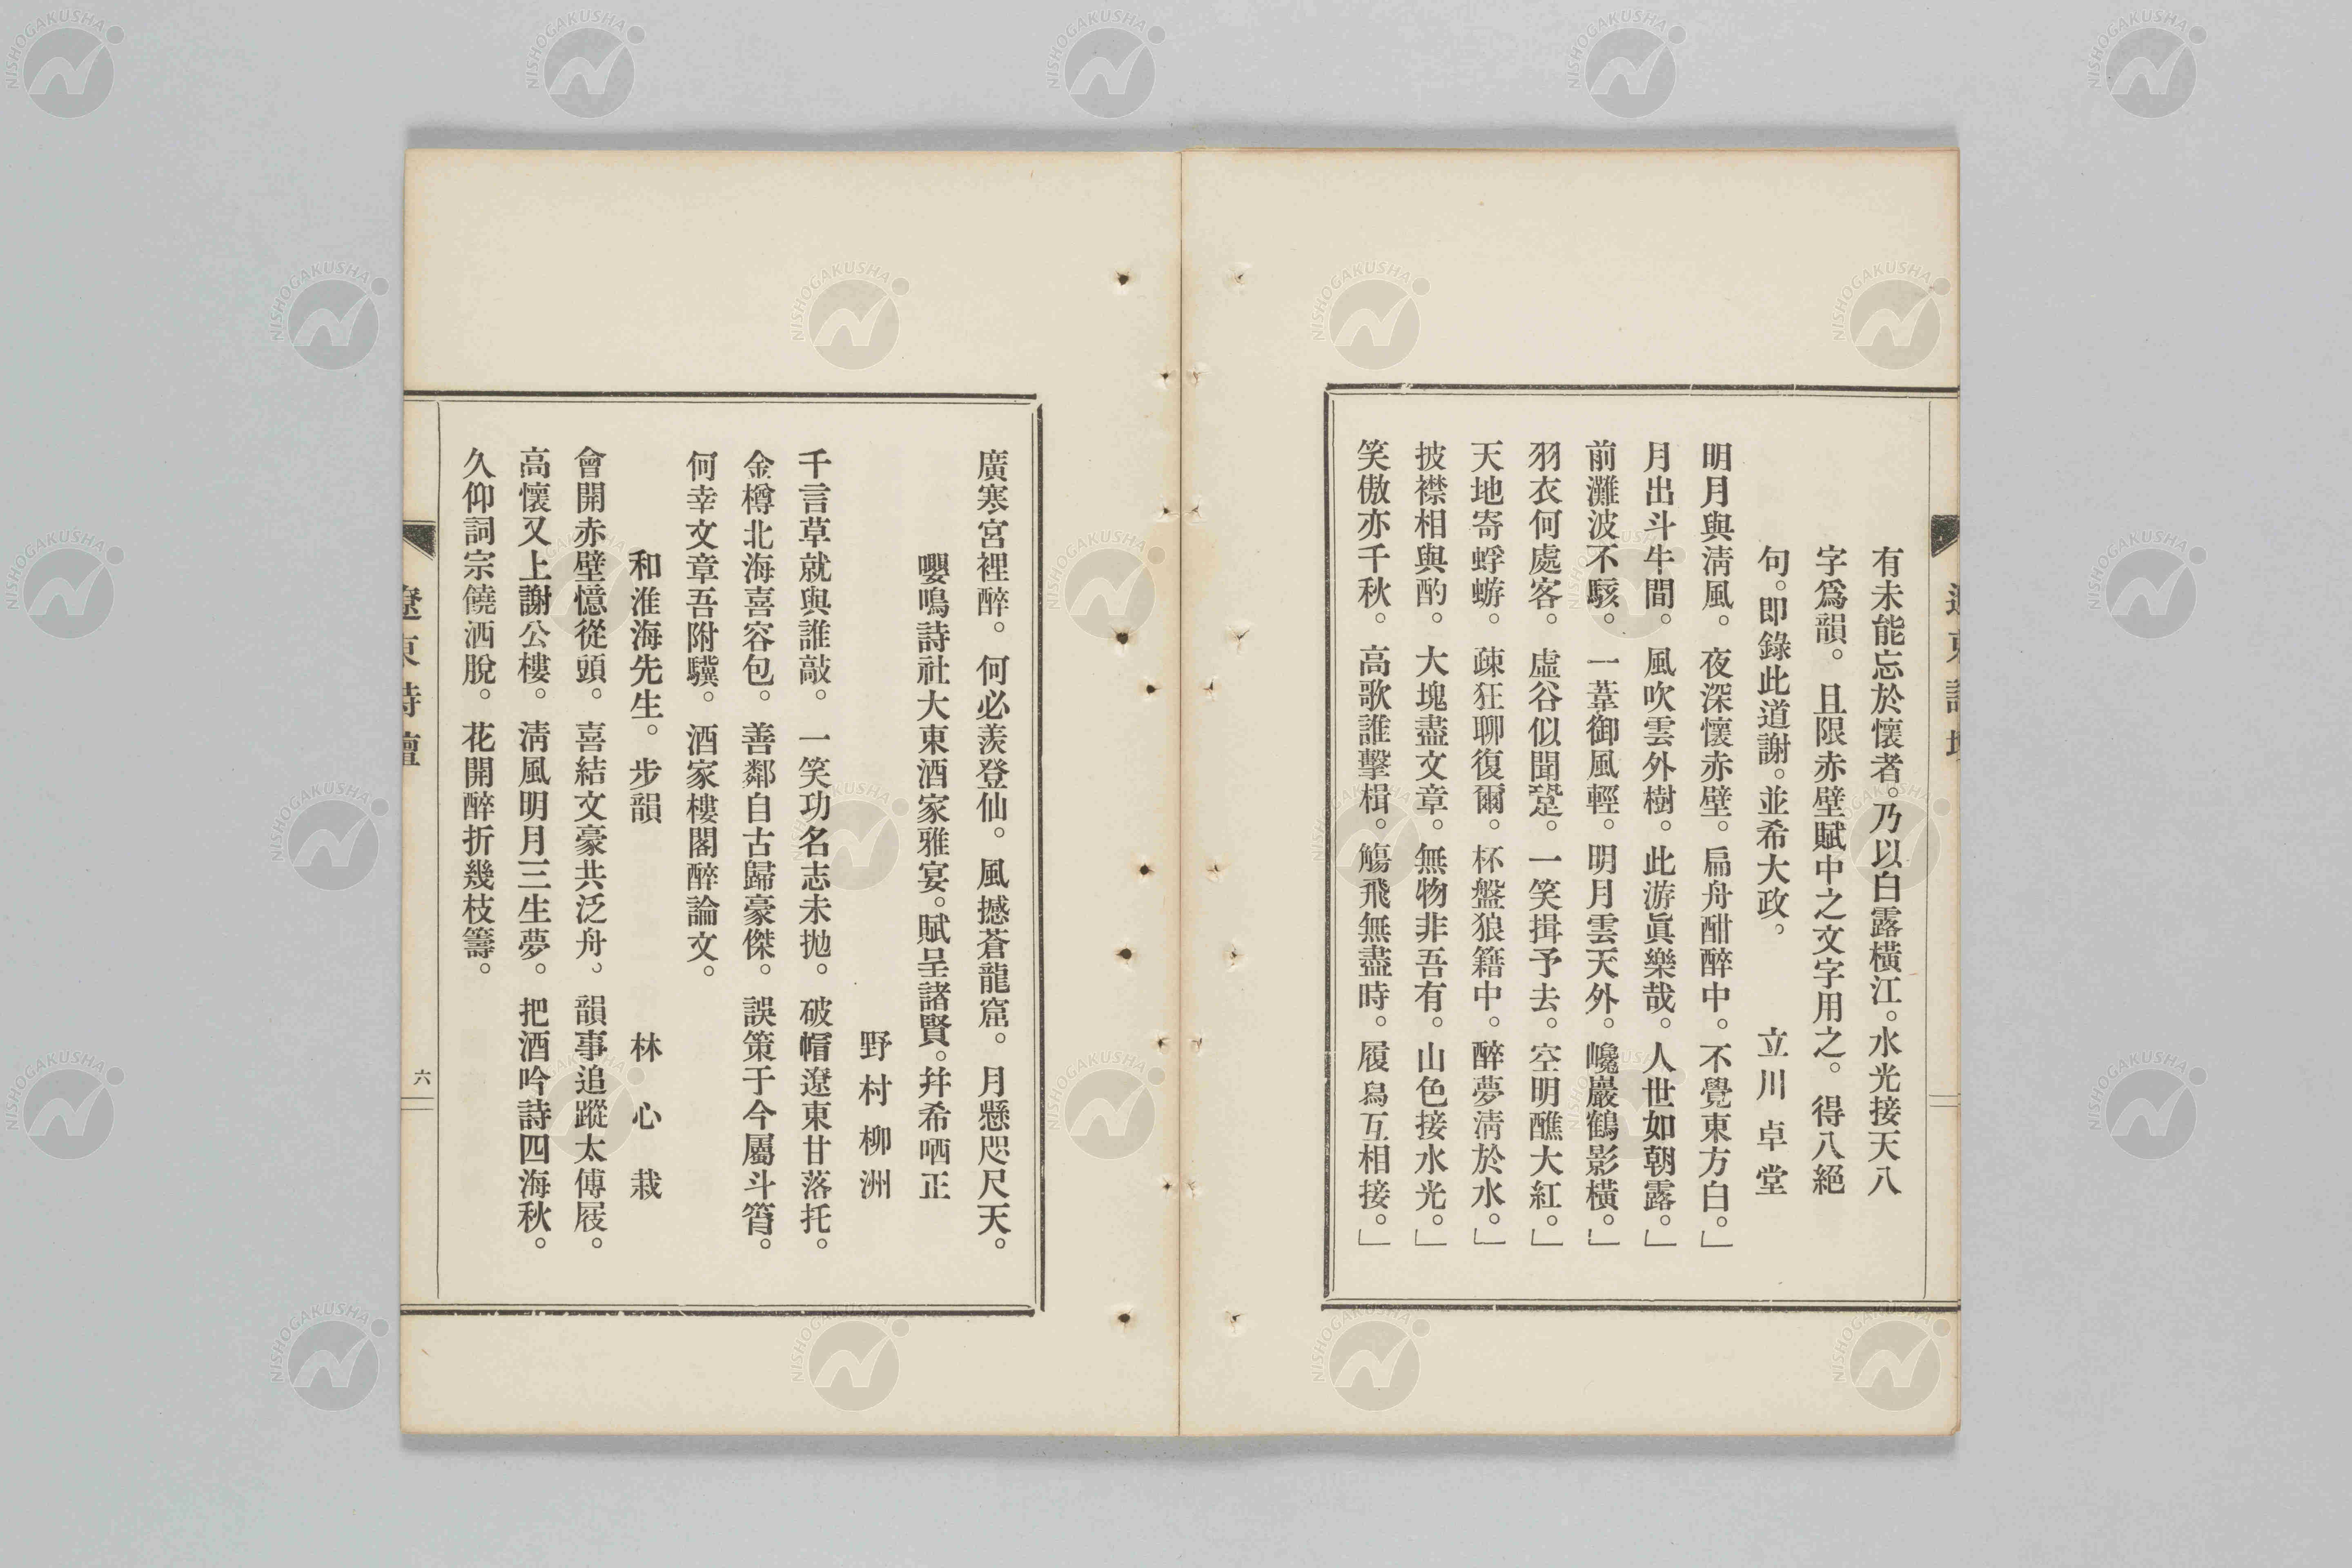 有未能忘於懷者。乃以白露橫江。水光接天八
字爲韻。且限赤壁賦中之文字用之。得八絕
句。即錄此道謝。並希大政。 立川卓堂
明月與淸風。夜深懷赤壁。扁舟酣醉中。不覺東方白。」
月出斗牛間。風吹雲外樹。此游眞樂哉。人世如朝露。」
前灘波不駭。一葦御風輕。明月雲天外。巉巖鶴影橫。」
羽衣何處客。虛谷似聞跫。一笑揖予去。空明醮大紅。」
天地寄蜉蝣。疎狂聊復爾。杯盤狼籍中。醉夢淸於水。」
披襟相與酌。大塊盡文章。無物非吾有。山色接水光。」
笑傲亦千秋。高歌誰擊楫。觴飛無盡時。履舃互相接。」
廣寒宮裡醉。何必羨登仙。風撼蒼龍窟。月懸咫尺天。
嚶鳴詩社大東酒家雅宴。賦呈諸賢。幷希哂正
野村柳洲
千言草就與誰敲。一笑功名志未拋。破帽遼東甘落托。
金樽北海喜容包。善鄰自古歸豪傑。誤策于今屬斗筲。
何幸文章吾附驥。酒家樓閣醉論文。
和淮海先生。步韻 林心栽
會開赤壁憶從頭。喜結文豪共泛舟。韻事追蹤太傅屐。
高懷又上謝公樓。淸風明月三生夢。把酒吟詩四海秋。
久仰詞宗饒洒脫。花開醉折幾枝籌。
遼東詩壇
六
NISHOGAKUSHA